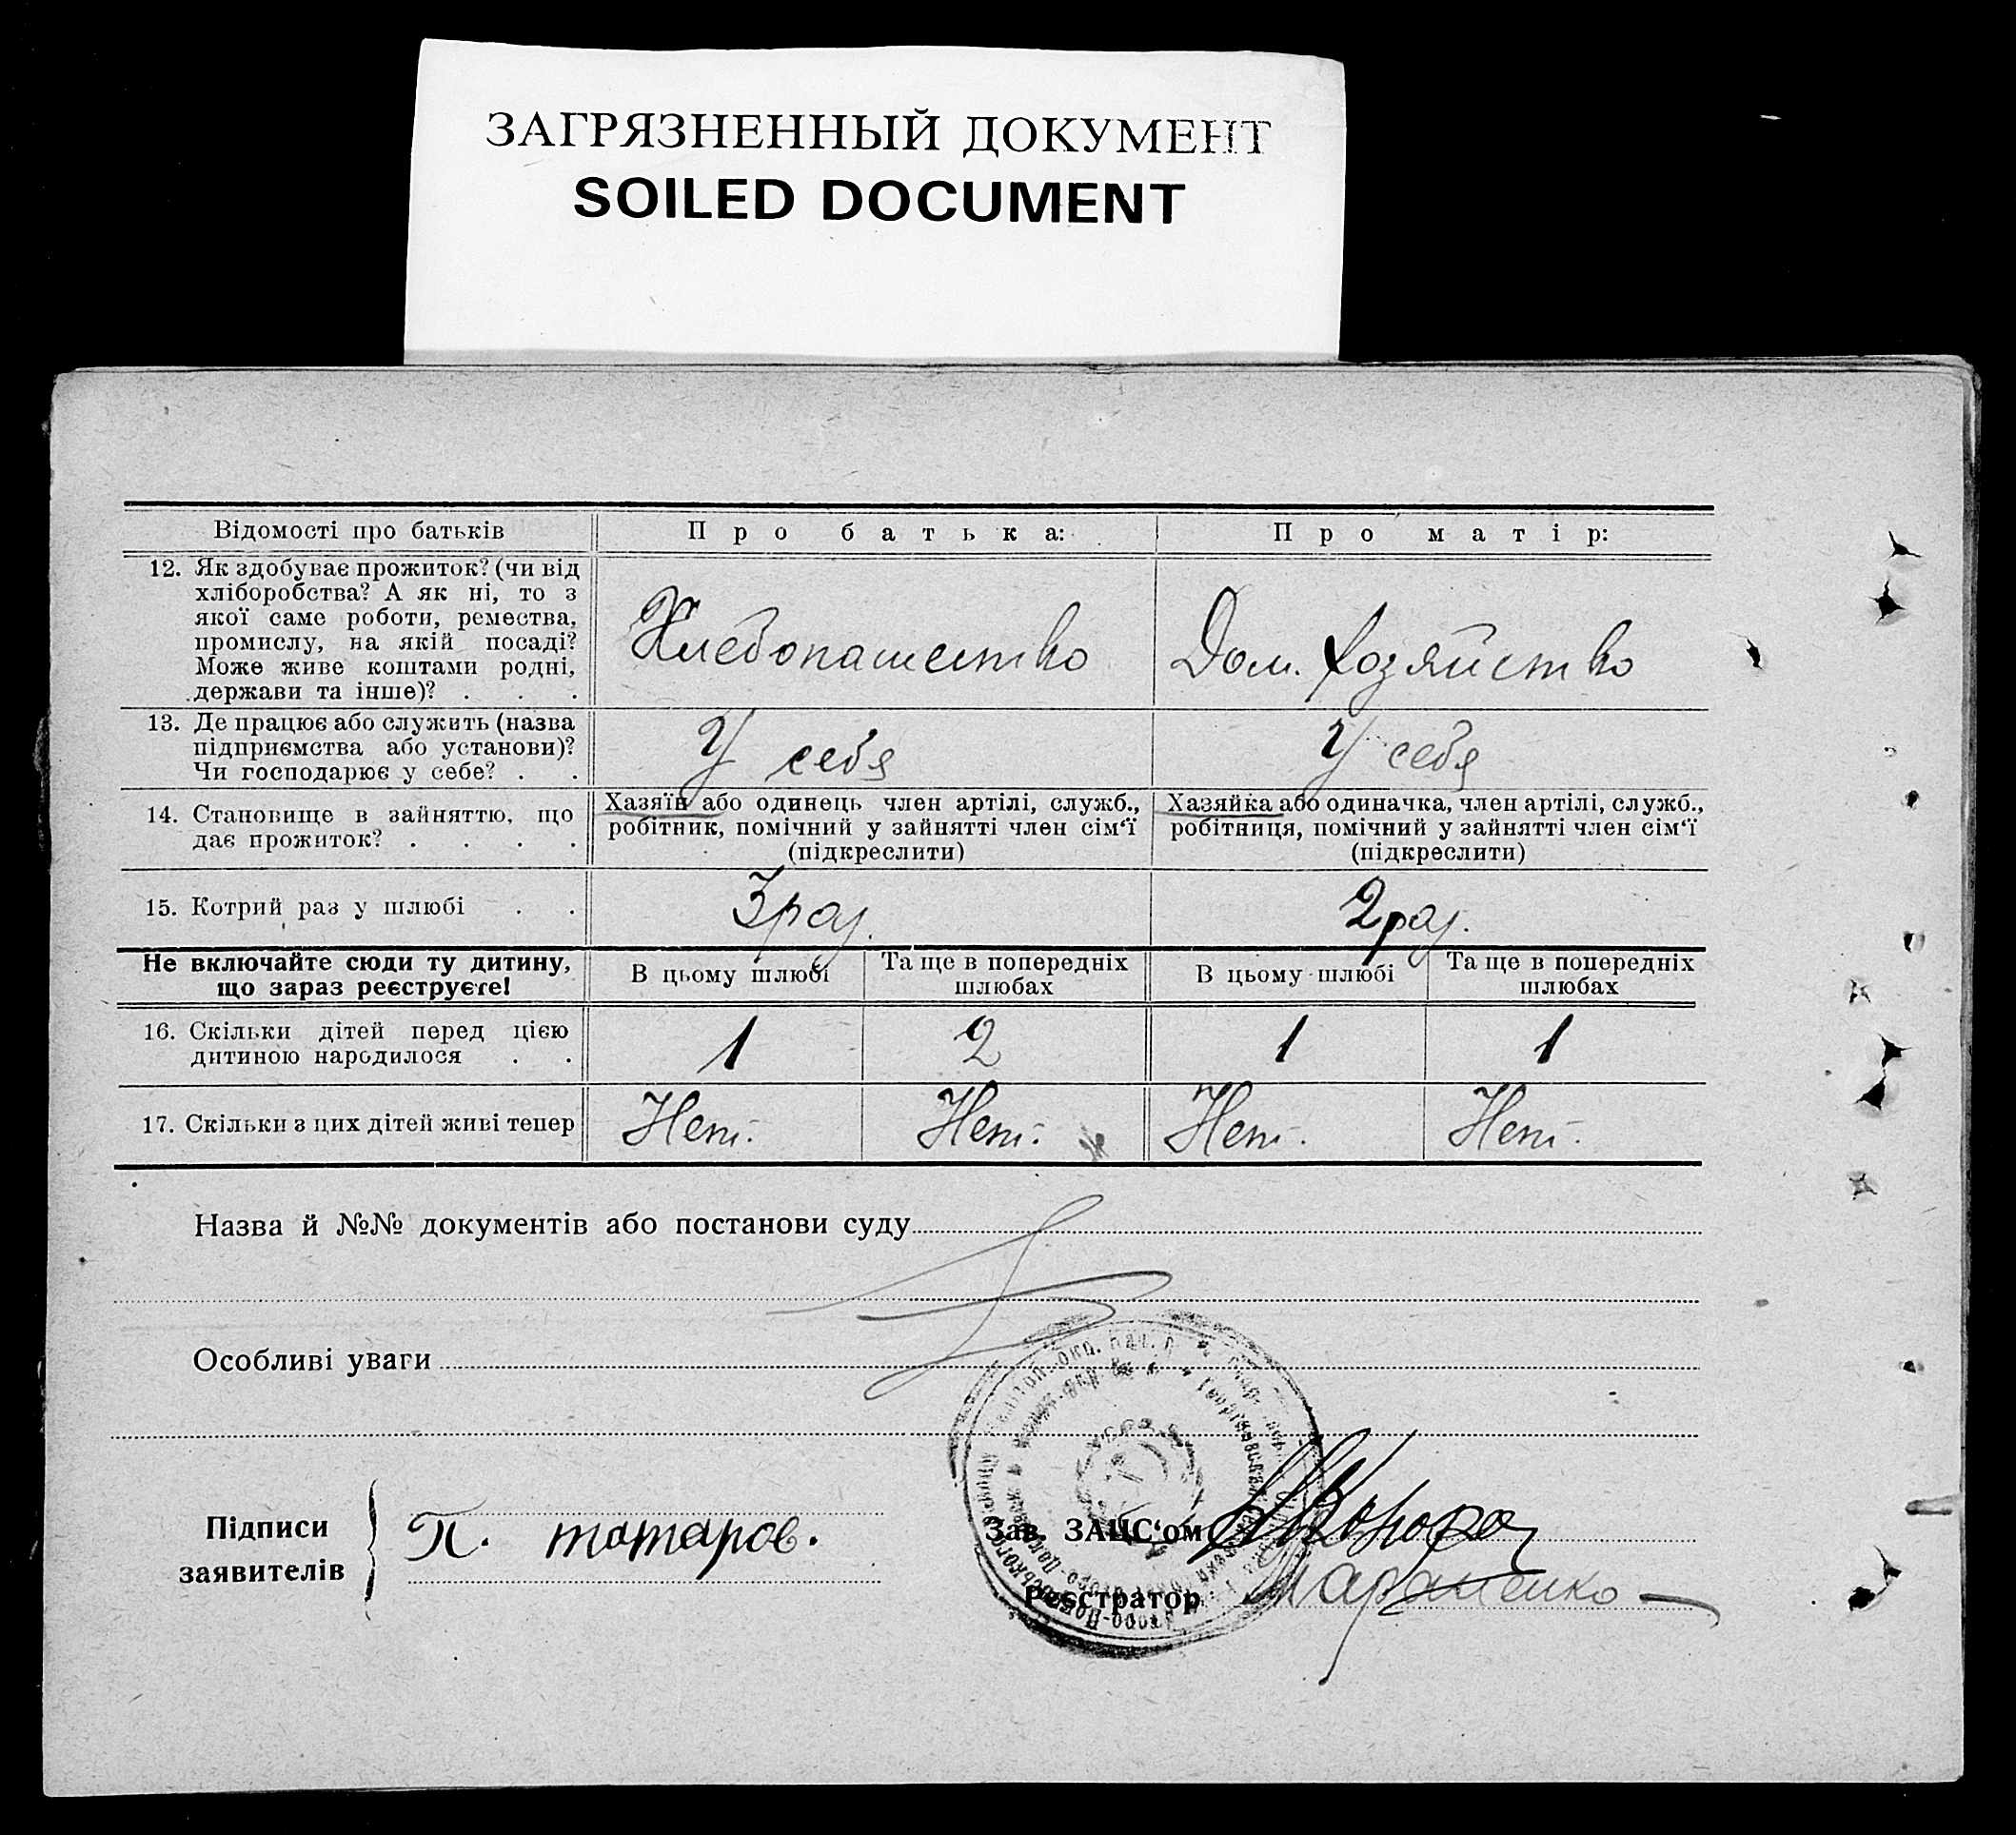 ЗАГРЯЗНЕННЫЙ ДОКУМЕНТ
SOILED DOCUMENT
Відомості про батьків
Про батька:
Про матір:
12. Як здобуває прожиток? (чи від
хліборобства? А як ні, то з
якої саме роботи, ремества,
промислу, на якій посаді?
Може живе коштами родні,
держави та інше)? . . .
Хлебопашество
Дом. хозяйство
13. Де працює або служить (назва
підприємства або установи)?
Чи господарює у себе? . .
У себя
У себя
14. Становище в зайняттю, що
дає прожиток? . . . .
Хазяїн або одинець член артілі, служб.,
робітник, помічний у зайнятті член сім‘ї
(підкреслити)
Хазяйка або одиначка, член артілі, служб.,
робітниця, помічний у зайнятті член сім‘ї
(підкреслити)
15. Котрий раз у шлюбі . .
3 раз.
2 раз.
Не включайте сюди ту дитину,
що зараз реєструєте!
В цьому шлюбі
Та ще в попередніх
шлюбах
В цьому шлюбі
Та ще в попередніх
шлюбах
16. Скільки дітей перед цією
дитиною народилося . .
1
2
1
1
17. Скільки з цих дітей живі тепер
Нет.
Нет.
Нет.
Нет.
Назва й №№ документів або постанови суду
Особливі уваги
Підписи
заявителів
П. татаров.
Зав. ЗАЦС‘ом
Реєстратор